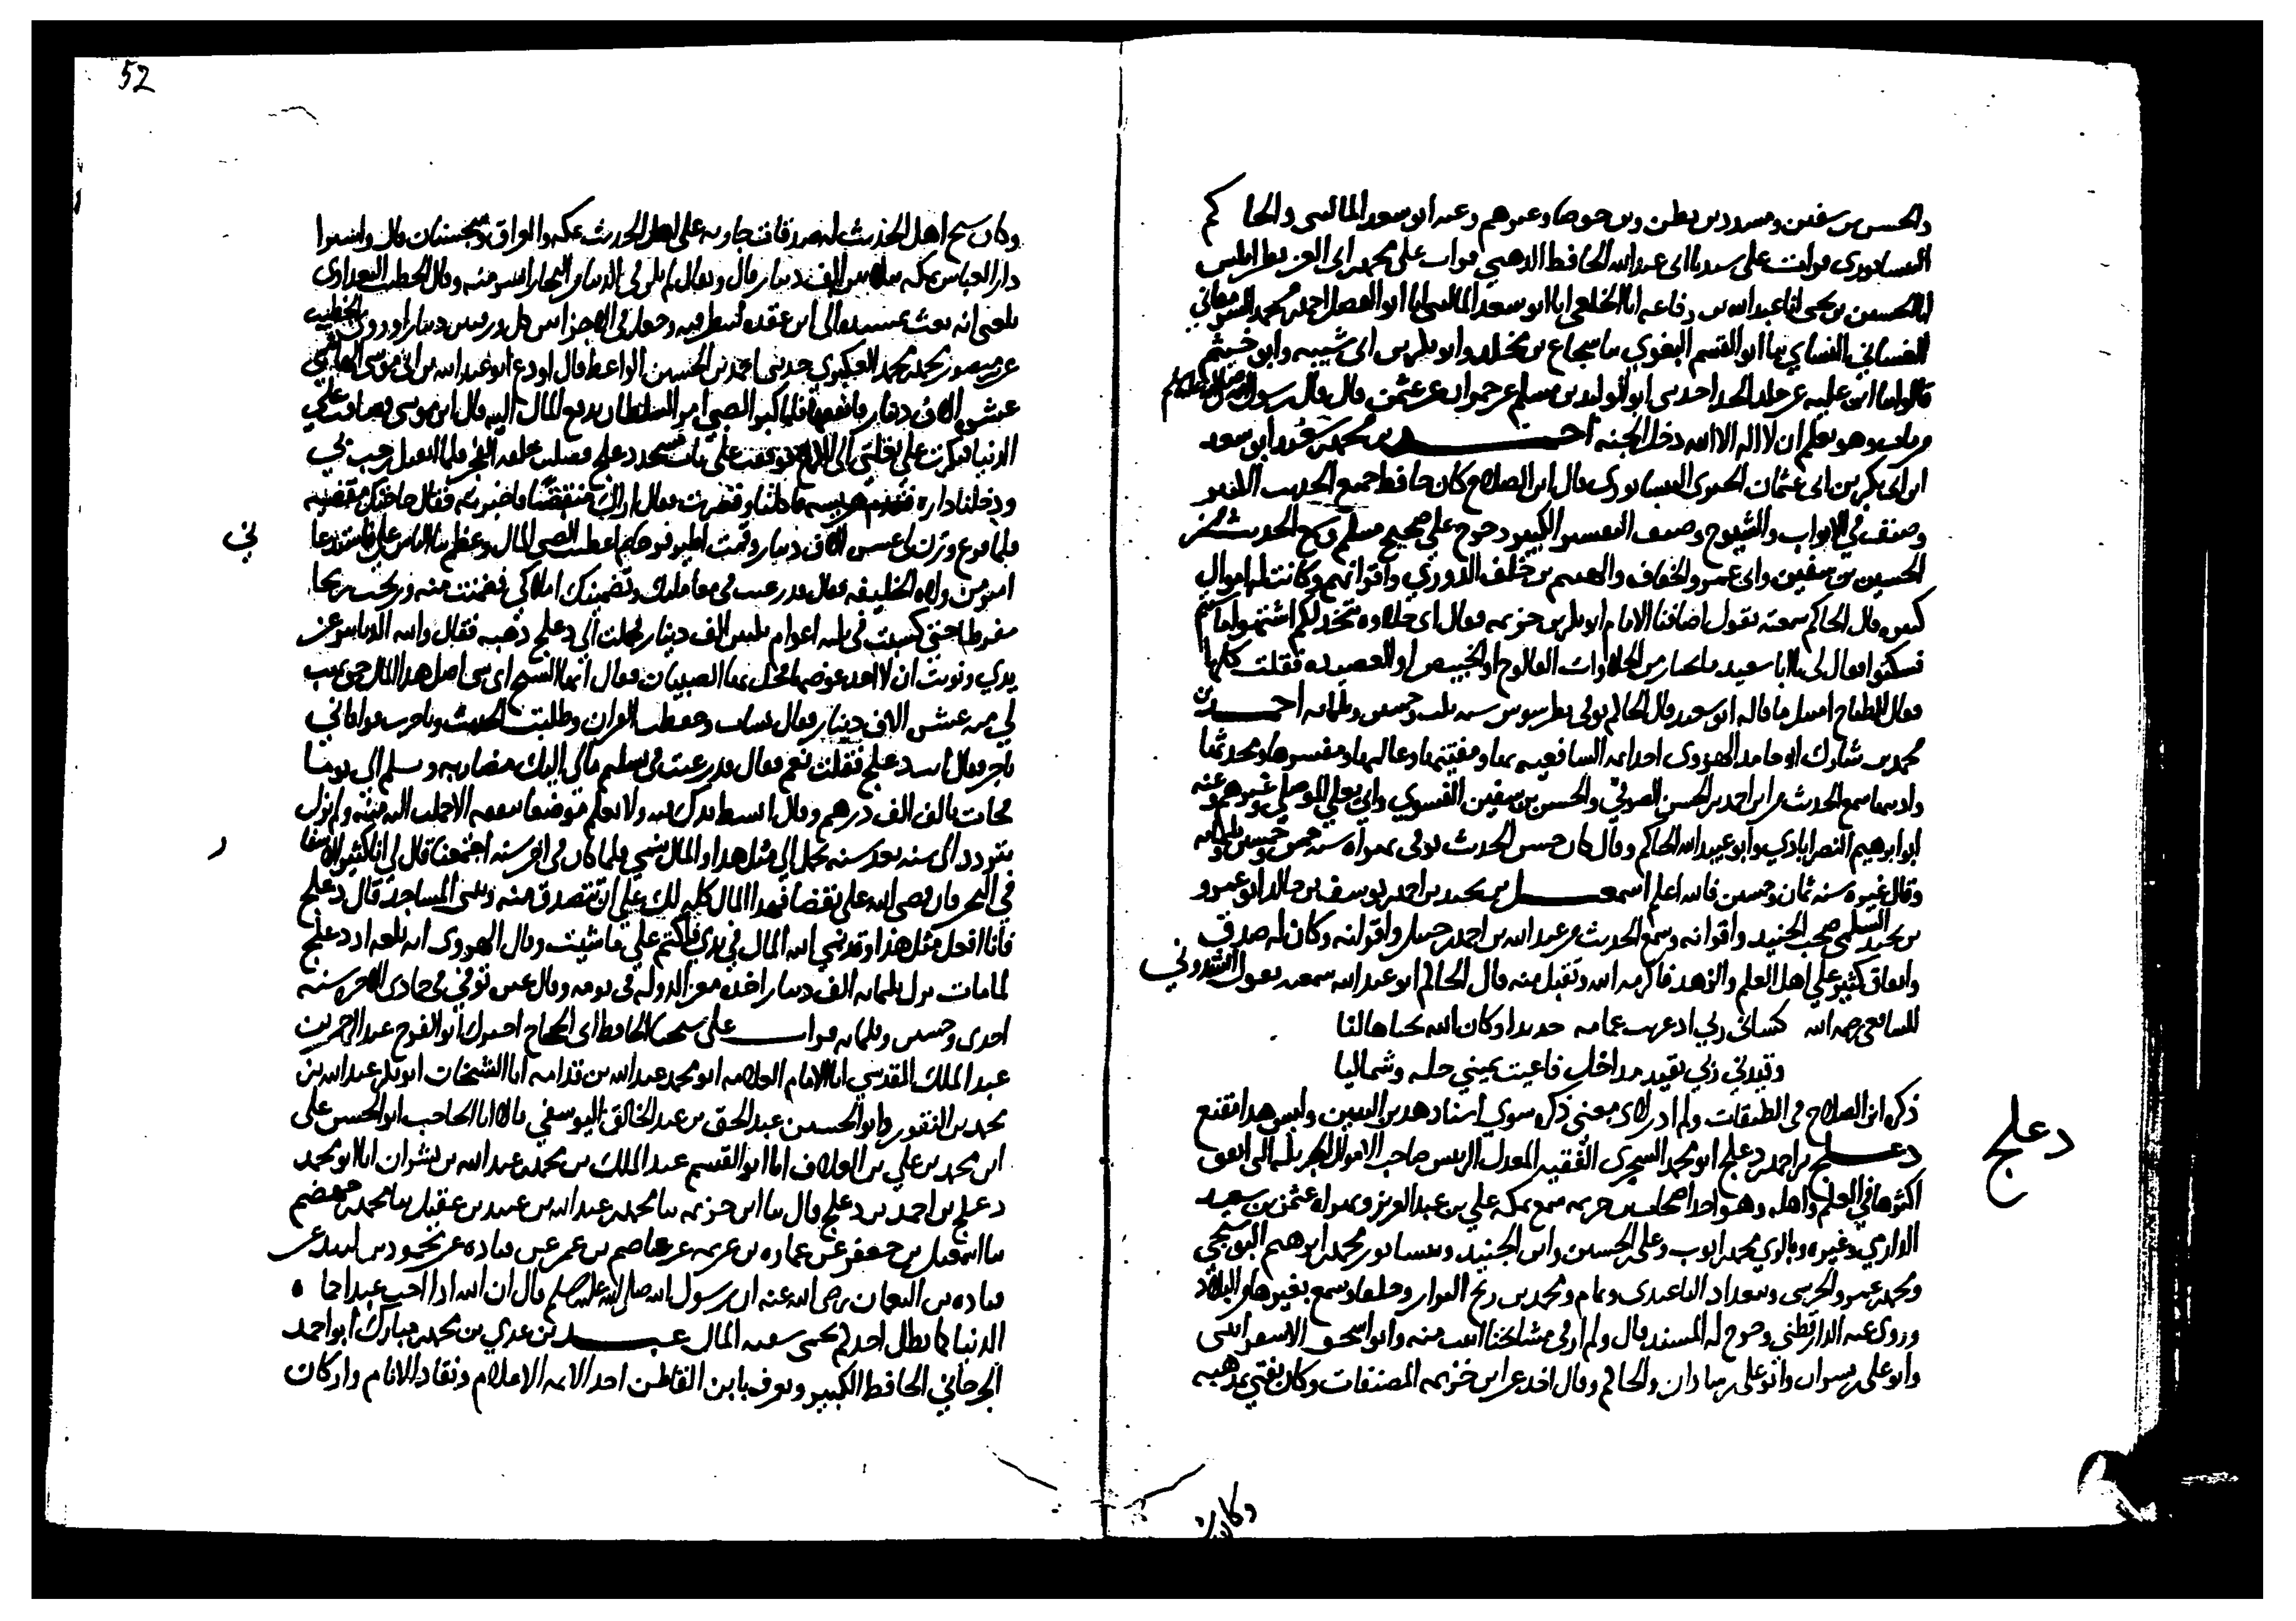 والحسن بن سفين ومسدد بن قطن وغيرهم وعنه ابو سعد الماليني والحاكم
النيسابوري قرات على سيدنا ابي عبد الله الحافظ الذهبي
انا الحسين بن يحيى انا عبد الله بن رفاعه انا الخلعي انا ابو سعد الماليني انا ابو الفضل احمد بن محمد
الغساني النساي نا ابو القسم البغوي نا شجاع بن مخلد وابو بكر بن ابي شيبه وابو خيثم
قالوا نا ابن عليه عن خلد الحذا حدثني ابو الوليد بن مسلم عن حمران عن عثمن قال قال رسول الله صلى الله عليه وسلم
من مات وهو يعلم ان لا اله الا الله دخل الجنه احمد بن محمد بن سعيد ابو سعد
ابن ابي بكر بن ابي عثمان الحيري النيسابوري قال ابن الصلاح كان حافظا جمع الحديث الكثير
وصنف في الابواب والشيوخ وصنف التفسير الكبير وخرج على صحيح مسلم وسمع الحديث من
الحسين بن سفين وابي عمرو الخفاف والهيثم بن خلف الدوري واقرانهم وكانت له اموال
كثيره قال الحاكم سمعته يقول اضافنا الامام ابو بكر بن خزيمه فقال اي حلاوه نتخذ لكم اشتهوا
فسكتوا فقال لي يا ابا سعيد ما تختار من الحلاوات الفالوذج او الخبيص او العصيده فقلت كلها
فقال للطباخ امتثل ما قاله ابو سعيد قال الحاكم توفي بطرسوس سنه ثلث وخمسين وثلثمائه احمد بن
محمد بن شارك ابو حامد الهروي احد ايمه الشافعيه بها ومفتيها وعالمها ومفسرها ومحدثها
واديبها سمع الحديث من احمد بن الحسن الصوفي والحسن بن سفين الفسوي وابي يعلي الموصلي وغيرهم وعنه
ابو ابرهيم النصراباذي وابو عبد الله الحاكم وقال كان حسن الحديث توفي بهراه سنه خمس وخمسين وثلثمائه
وقال غيره سنه ثمان وخمسين فالله اعلم اسمعيل بن نجيد بن احمد بن يوسف بن خالد ابو عمرو
بن نجيد السلمي صحب الجنيد واقرانه وسمع الحديث من عبد الله بن احمد بن حنبل واقرانه وكان له صدق
وانفاق كثير على اهل العلم والزهد فاكرمه الله وتقبل منه قال الحاكم ابو عبد الله سمعته يقول انشدوني
للشافعي رحمه الله كساني ربي اذ عريت عمامه جديدا وكان الله يختاها لنا
وقيدني ربي بقيد مداخل فاعيت يميني حله وشماليا
ذكره ابن الصلاح في الطبقات ولم ادر لاي معنى ذكره سوى انشاد هذين البيتين وليس هذا بمقنع
دعلج بن احمد بن دعلج ابو محمد السجزي الفقيه المعدل الرييس صاحب الاموال الجزيله التي انفق
اكثرها في العلم واهله وهو احد اصحاب ابن خزيمه سمع بمكه علي بن عبد العزيز وبهراه عثمن بن سعيد
الدارمي وغيره وبالري محمد بن ايوب وعلي بن الحسين وابن الجنيد وبنيسابور محمد بن ابرهيم البوشنجي
ومحمد بن عمرو الحرشي وببغداد وتمام ومحمد بن ربح البزاز وخلقا وسمع بغيرها من البلاد
وروى عنه الدارقطني وخرج له المسند قال ولم ار في مشايخنا اثبت منه وابو اسحق الاسفرايني
وابو علي بن شاذان والحاكم وقال اخذ عن ابن خزيمه المصنفات وكان يفتي بمذهبه
دعلج
وكان شيخ
52
وكان شيخ اهل الحديث له صدقات جاريه على اهل الحديث بمكه والعراق وسجستان قال واشترا
دار العباس بمكه بثلاثين الف دينار قال ويقال لم يكن في الدنيا من التجار ايسر منه وقال الخطيب البغدادي
بلغني انه بعث بمسنده الى ابن عقده لينظر فيه وجعل في الاجزا بين كل ورقتين دينارا وروى الخطيب
عن منصور محمد بن محمد العكبري حدثني احمد بن الحسين الواعظ قال اودع ابو عبد الله بن ابي موسى الهاشمي
عشره الاف دينار فانفقها فلما كبر الصبي امر السلطان بدفع المال اليه قال ابن موسى فضاقت علي
الدنيا فبكرت على بغلتي الى الكرخ فوقفت على باب مسجد دعلج فصليت خلفه الفجر فلما انفتل رحب بي
ودخلنا داره فقدم هريسه فاكلنا وقصرت فقال اراك منقبضا فاخبرته فقال حاجتك مقضيه
فلما فرغ وزن لي عشره الاف دينار وقمت اطير فرحا ثم اعطيت الصبي المال وعظم ثنا الناس علي فاستدعاني
امير من اولاد الخليفه فقال قد رغبت في معاملتك وتضمينك املاكي فضمنت منه وربحت ربحا
مفرطا حتى كسبت في ثلثه اعوام ثلثين الف دينار فحملت الى دعلج ذهبه فقال والله ما خرجت الدنانير عن
يدي ونويت ان لا اخذ عوضها فحل بها الصبيان فقلت ايها الشيخ اي شي اصل هذا المال حتى تهب
لي منه عشره الاف دينار فقال نشات وحفظت القران وطلبت الحديث وتاجرت فوافاني
تاجر فقال انت دعلج فقلت نعم فقال قد رغبت في تسليم مالي اليك مضاربه وسلم الي
بالف الف درهم وقال ابسط يدك فيه ولا تعلم موضعا ينفقه الا حملت اليه منه ولم يزل
يتردد الي سنه بعد سنه يحمل الي مثل هذا والمال ينمي فلما كان في اخر سنه اجتمعنا قال لي انا كثير الاسفار
في البحر فان قضى الله علي بقضا فهذا المال كله لك على ان تتصدق منه وتبني المساجد قال دعلج
فانا افعل مثل هذا وقد نمى الله المال في يدي فاكتم علي ما عشت وقال الهروي انه بلغه ان دعلج
لما مات ترك ثلثمائه الف دينار اخذه معز الدوله في يومه وقال غيره توفي في جمادى الاخره سنه
احدى وخمسين وثلثمائه قرات على شيخنا الحافظ ابي الحجاج اخبرك ابو الفرج عبد الرحمن بن
عبد الملك المقدسي انا الامام العلامه ابو محمد عبد الله بن قدامه انا الشيخان ابو بكر عبد الله بن
محمد بن النقور وابو الحسين عبد الحق بن عبد الخالق اليوسفي قالا انا الحاجب ابو الحسن علي
ابن محمد بن علي بن العلاف انا ابو القسم عبد الملك بن محمد بن عبد الله بن بشران انا ابو محمد
دعلج بن احمد بن دعلج قال نا ابن خزيمه نا محمد بن عبد الله بن عبيد بن عقيل نا محمد بن جهضم
نا اسمعيل بن جعفر عن عماره بن غزيه عن عاصم بن عمر بن قتاده عن محمود بن لبيد عن
قتاده بن النعمان رضي الله عنه ان رسول الله صلى الله عليه وسلم قال ان الله اذا احب عبدا حماه
الدنيا كما يظل احدكم يحمي سقيمه الماء عبد الله بن عدي بن محمد بن مبارك ابو احمد
الجرجاني الحافظ الكبير ويعرف بابن القطان احد الايمه الاعلام ونقاد الانام واركان